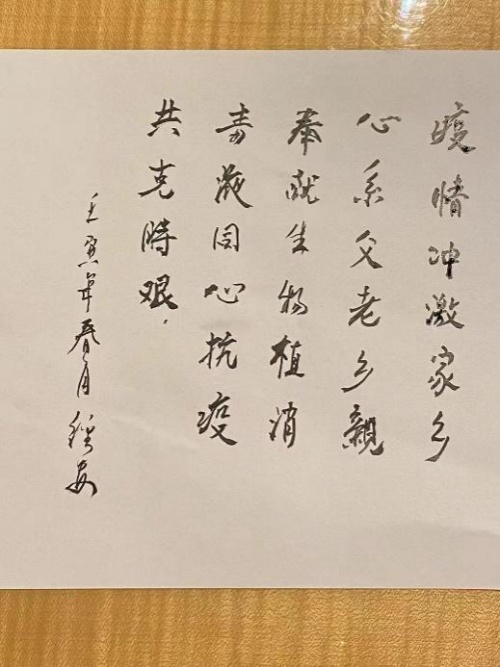 疫情冲激家乡
心系父老乡親
奉献生物植消
毒液同心抗疫
共克時艰.
壬寅年春月